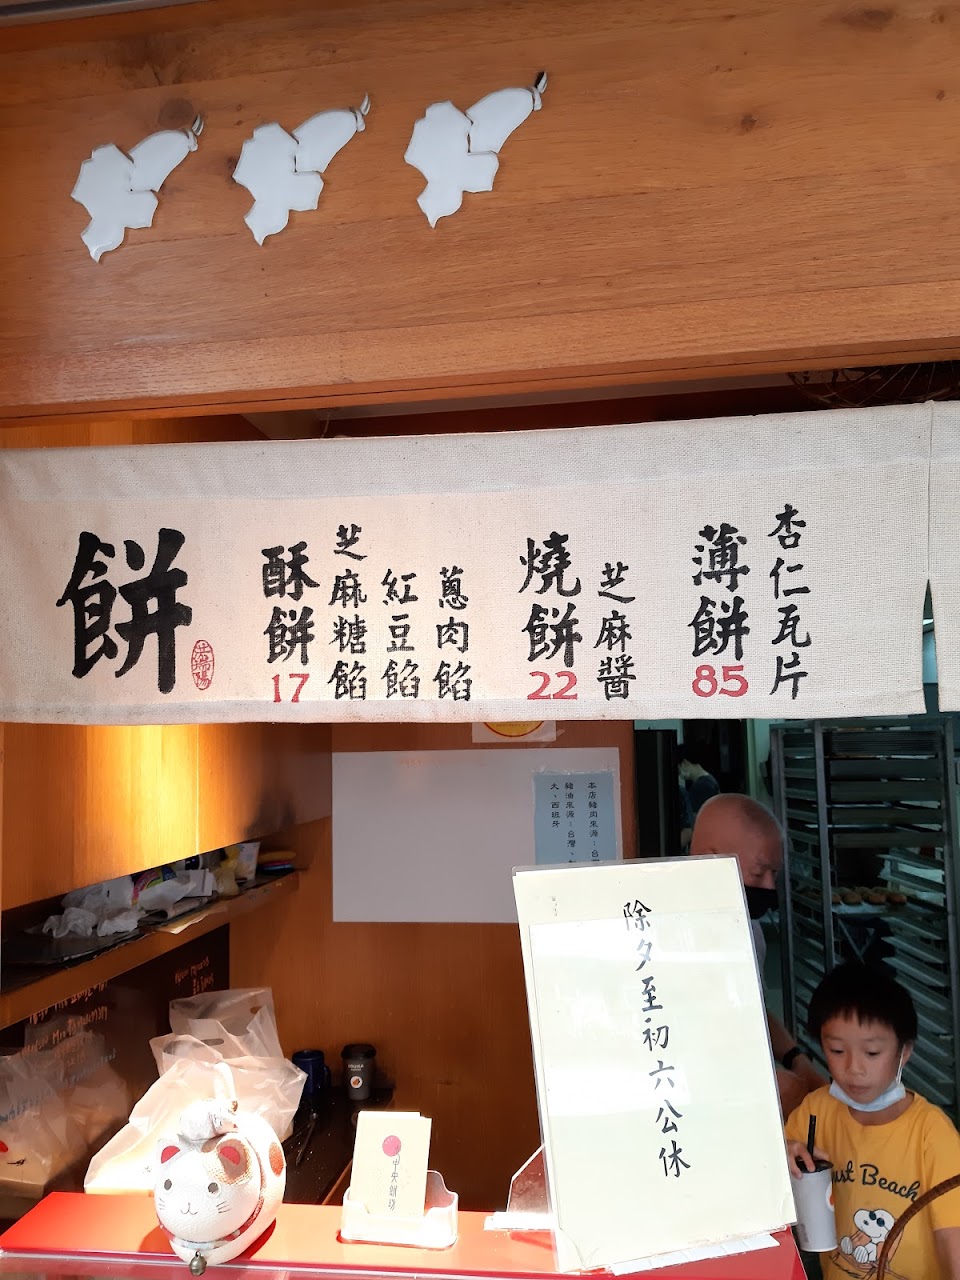 餅
酥餅
17
芝麻糖餡
紅豆餡
蔥肉餡
燒餅
22
芝麻醬
薄餅
85
杏仁瓦片
本店豬肉來源：台
豬油來源：台灣、
大、西班牙
除夕至初六公休
中央餅
ust Beach